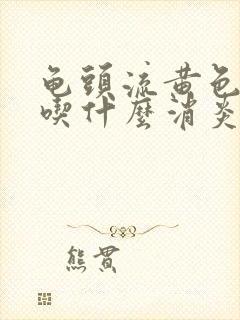 龟頭流黄色
喫什麼消炎
熊貫